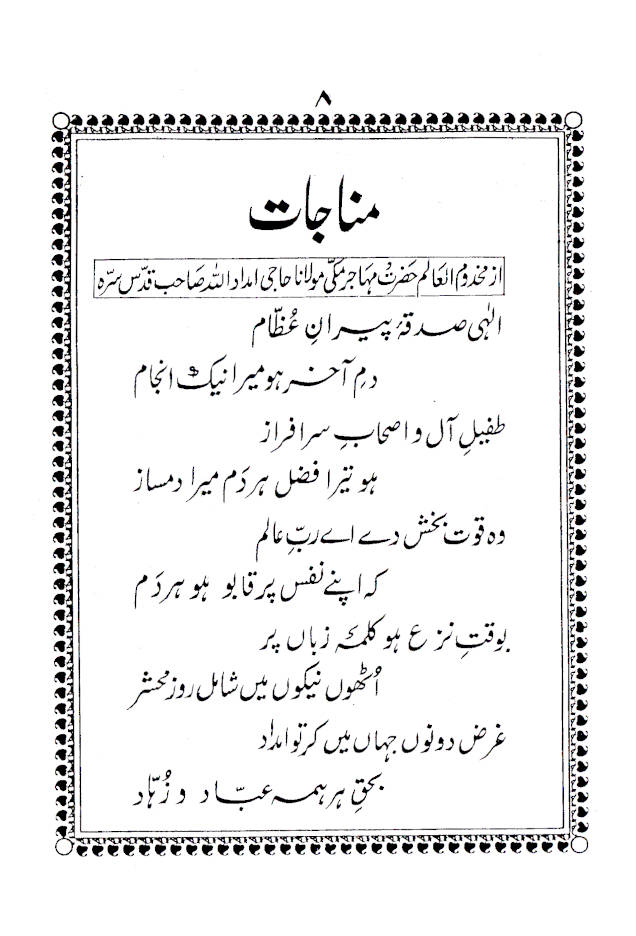 ۸
مناجات
از مخدوم العالم حضرت مہاجر مکی مولانا حاجی امداد اللہ صاحب قدّس سرہ
الٰہی صدقۂ پیرانِ عُظّام
دمِ آخر ہو میرا نیک انجام
طفیلِ آل و اصحابِ سرافراز
ہو تیرا فضل ہر دَم میرا دمساز
وہ قوت بخش دے اے ربِّ عالم
کہ اپنے نفس پر قابو ہو ہر دَم
بوقتِ نزع ہو کلمہ زباں پر
اُٹھوں نیکوں میں شامل روز محشر
غرض دونوں جہاں میں کر تو امداد
بحقِ ہر ہمہ عبّاد و زُہّاد